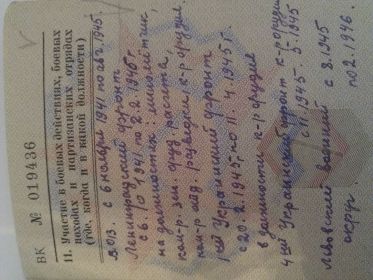 ВК № 019436
11. Участие в боевых действиях, боевых
походах и партизанских отрядах
(где, когда и в какой должности)
с 6 ноября 1941 по авг. 1945.
Ленинградский фронт
с 6. 10 1941 по 2. 2 1945г
на должностях: минометчик,
ком-р оруд. расчета,
ком-р отд. разведки, к-р орудия
1ый Украинский фронт
с 20. 2. 1945г по 11. 4. 1945г.
в должности к-р орудия
4ый Украинский фронт к-р орудия
с 11. 1945. 5-1945
Львовский военный с 8. 1945
округ. по 2. 946.